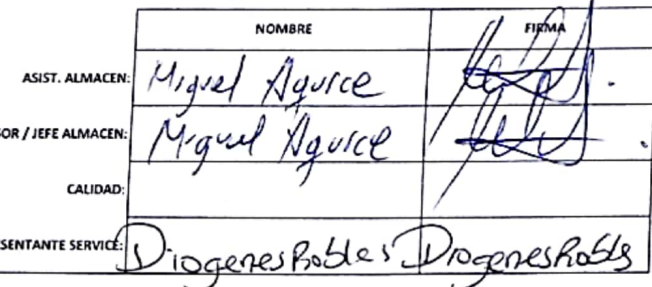 NOMBRE FIRMA
ASIST. ALMACEN: Miguel Aguice
SOR / JEFE ALMACEN: Miguel Aguice
CALIDAD:
SENTANTE SERVICE: Diogenes Robles Diogenes Robls